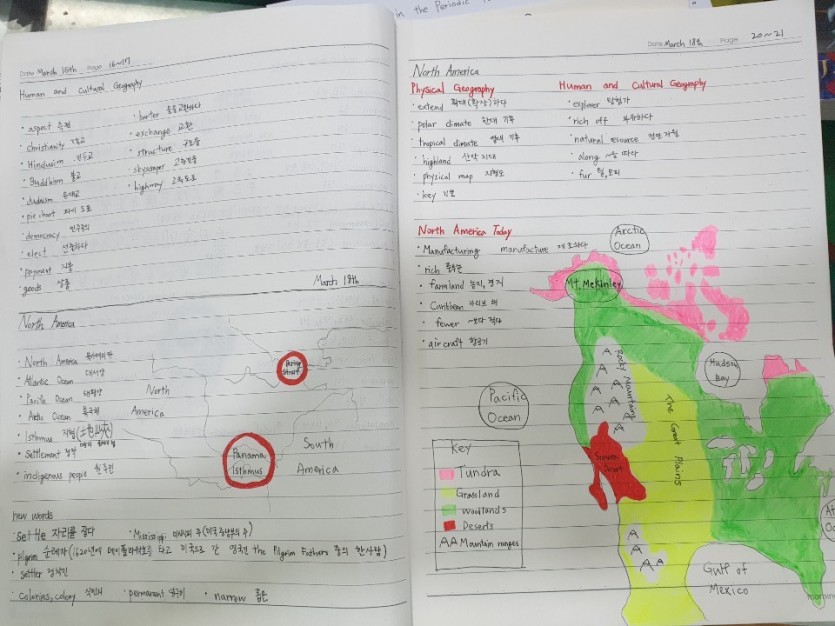 in the Periodic
Date March 15th Page 16~17
Human and Cultural Geography
· aspect 측면
· christianity 기독교
· Hinduism 힌두교
· Buddhism 불교
· Judaism 유대교
· pie chart 파이 도표
· democracy 민주주의
· elect 선출하다
· payment 지불
· goods 상품
· barter 물물교환하다
· exchange 교환
· structure 구조물
· skyscraper 고층건물
· highway 고속도로
March 18th
North America
· North America 북아메리카
· Atlantic Ocean 대서양
· Pacific Ocean 태평양
· Arctic Ocean 북극해
· Isthmus 지협
· settlement 정착
· indigenous people 원주민
Bering
Strait
North
America
Panama
Isthmus
South
America
new words
· settle 자리를 잡다
· Mississippi 미시시피 주(미국 중남부의 주)
· pilgrim 순례자(1620년에 메이플라워호를 타고 미국으로 간 영국인 the Pilgrim Fathers 중의 한사람)
· settler 정착민
· colonies, colony 식민지
· permanent 영구적
· narrow 좁은
Date March 18th Page 20~21
North America
Physical Geography
· extend 확대(확장)하다
· polar climate 한대 기후
· tropical climate 열대 기후
· highland 산악 지대
· physical map 지형도
· key
Human and Cultural Geography
· explorer 탐험가
· rich off 부유하다
· natural resource 천연자원
· along ~을 따라
· fur 털, 모피
North America Today
· Manufacturing manufacture 제조하다
· rich 풍부한
· farmland 농지, 경지
· Caribbean 카리브 해
· fewer ~보다 적다
· aircraft 항공기
Arctic
Ocean
Mt. Mckinley
Hudson
Bay
Rocky Mountains
The Great Plains
Pacific
Ocean
Sonoran
Desert
Key
Tundra
Grassland
Woodlands
Deserts
AA Mountain ranges
Gulf of
Mexico